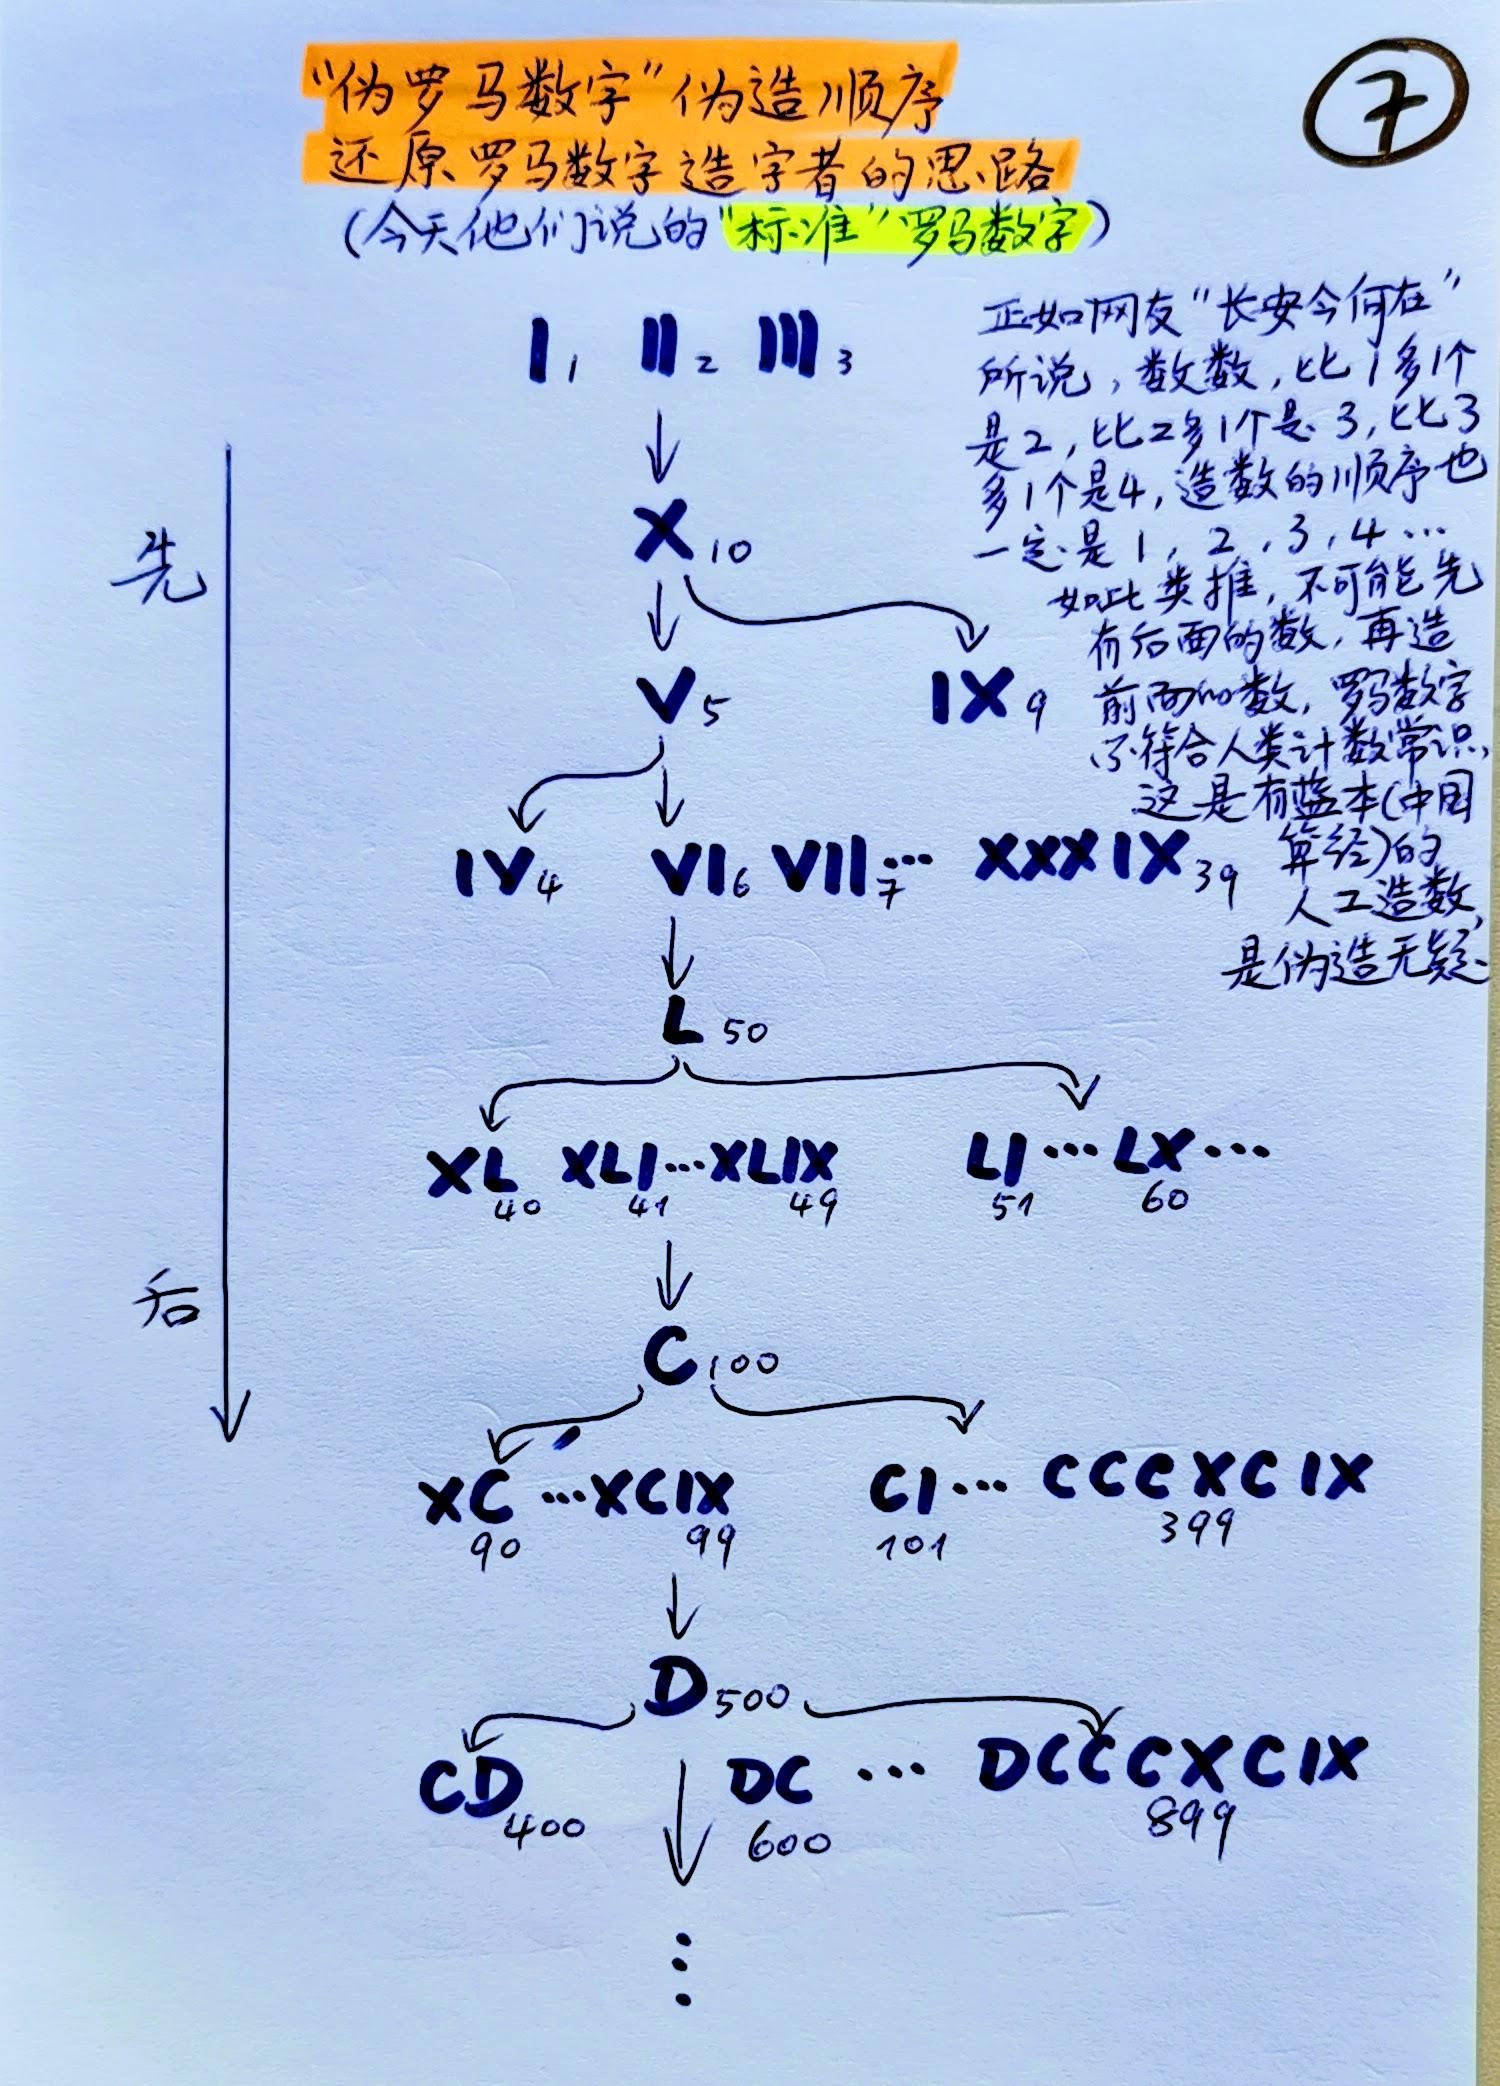 “伪罗马数字”伪造顺序
7
还原罗马数字造字者的思路
(今天他们说的“标准”罗马数字)
正如网友“长安今何在”
所说，数数，比1多1个
是2，比2多1个是3，比3
多1个是4，造数的顺序也
一定是1，2，3，4…
如此类推，不可能先
有后面的数，再造
前面的数，罗马数字
不符合人类计数常识，
这是有蓝本(中国
算经)的
人工造数，
是伪造无疑.
先
后
I 1 II 2 III 3
X 10
V 5 IX 9
IV 4 VI 6 VII 7 … XXXIX 39
L 50
XL XLI…XLIX LI…LX…
40 41 49 51 60
C 100
XC …XCIX CI… CCCXCIX
90 99 101 399
D 500
CD DC … DCCCXCIX
400 600 899
⋮